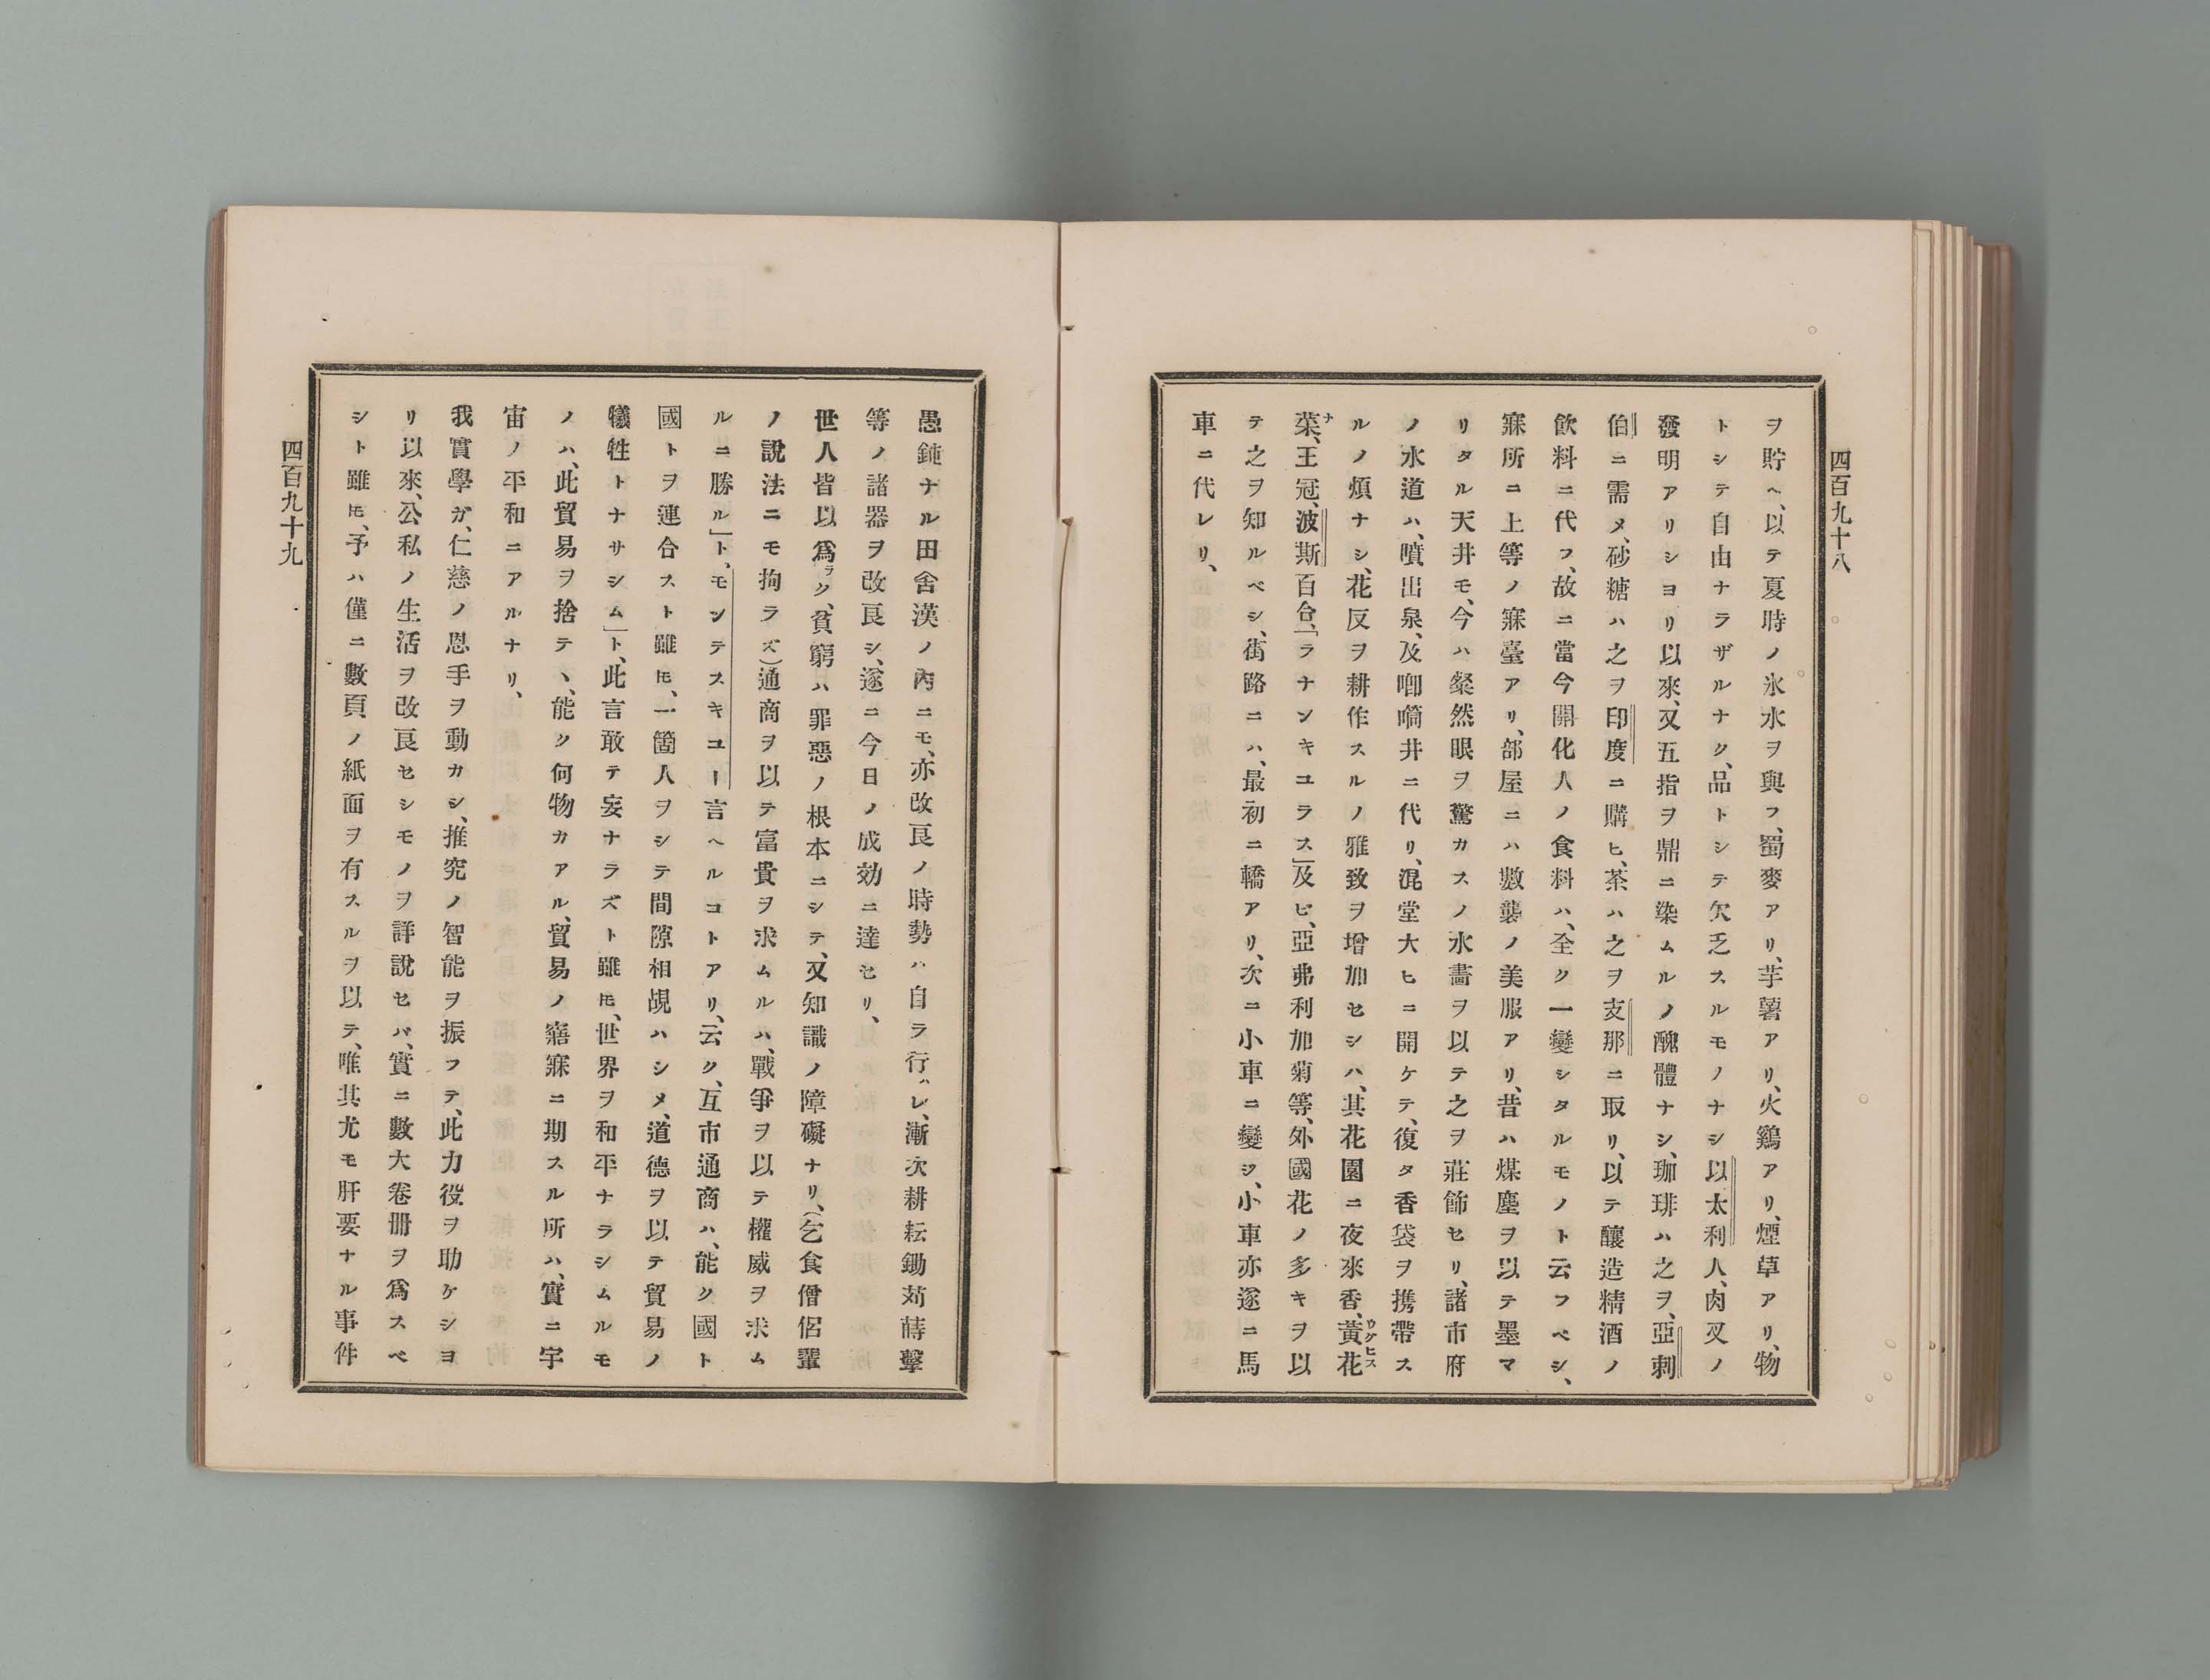 四百九十八
ヲ貯ヘ、以テ夏時ノ氷水ヲ與フ、蜀麥アリ、芋薯アリ、火鷄アリ、煙草アリ、物
トシテ自由ナラザルナク、品トシテ欠乏スルモノナシ以太利人、肉叉ノ
發明アリシヨリ以來、又五指ヲ鼎ニ染ムルノ醜體ナシ、珈琲ハ之ヲ、亞剌
伯ニ需メ、砂糖ハ之ヲ印度ニ購ヒ、茶ハ之ヲ支那ニ取リ、以テ釀造精酒ノ
飮料ニ代フ、故ニ當今開化人ノ食料ハ、全ク一變シタルモノト云フベシ、
寐所ニ上等ノ寐臺アリ、部屋ニハ數襲ノ美服アリ、昔ハ煤塵ヲ以テ墨マ
リタル天井モ、今ハ粲然眼ヲ驚カスノ水畵ヲ以テ之ヲ莊飾セリ、諸市府
ノ水道ハ、噴出泉、及喞筩井ニ代リ、混堂大ヒニ開ケテ、復タ香袋ヲ携帶ス
ルノ煩ナシ、花反ヲ耕作スルノ雅致ヲ增加セシハ、其花園ニ夜來香、黃花
菜、王冠、波斯百合、「ラナンキユラス」及ビ、亞弗利加菊等、外國花ノ多キヲ以
テ之ヲ知ルベシ、街路ニハ、最初ニ轎アリ、次ニ小車ニ變シ、小車亦遂ニ馬
車ニ代レリ、
愚鈍ナル田舍漢ノ內ニモ、亦改良ノ時勢ハ自ラ行ハレ、漸次耕耘鋤苅蒔擊
等ノ諸器ヲ改良シ、遂ニ今日ノ成効ニ達セリ、
世人皆以爲ラク、貧窮ハ罪惡ノ根本ニシテ、又知識ノ障礙ナリ、（乞食僧侶輩
ノ說法ニモ拘ラズ）通商ヲ以テ富貴ヲ求ムルハ、戰爭ヲ以テ權威ヲ求ム
ルニ勝ル」ト、モンテスキユー言ヘルコトアリ、云ク、互市通商ハ、能ク國ト
國トヲ連合スト雖𪜈、一箇人ヲシテ間隙相覘ハシメ、道德ヲ以テ貿易ノ
犧牲トナサシム」ト、此言敢テ妄ナラズト雖𪜈、世界ヲ和平ナラシムルモ
ノハ、此貿易ヲ捨テヽ、能ク何物カアル、貿易ノ寤寐ニ期スル所ハ、實ニ宇
宙ノ平和ニアルナリ、
我實學ガ、仁慈ノ恩手ヲ動カシ、推究ノ智能ヲ振フテ、此力役ヲ助ケシヨ
リ以來、公私ノ生活ヲ改良セシモノヲ詳說セバ、實ニ數大卷册ヲ爲スベ
シト雖𪜈、予ハ僅ニ數頁ノ紙面ヲ有スルヲ以テ、唯其尤モ肝要ナル事件
四百九十九